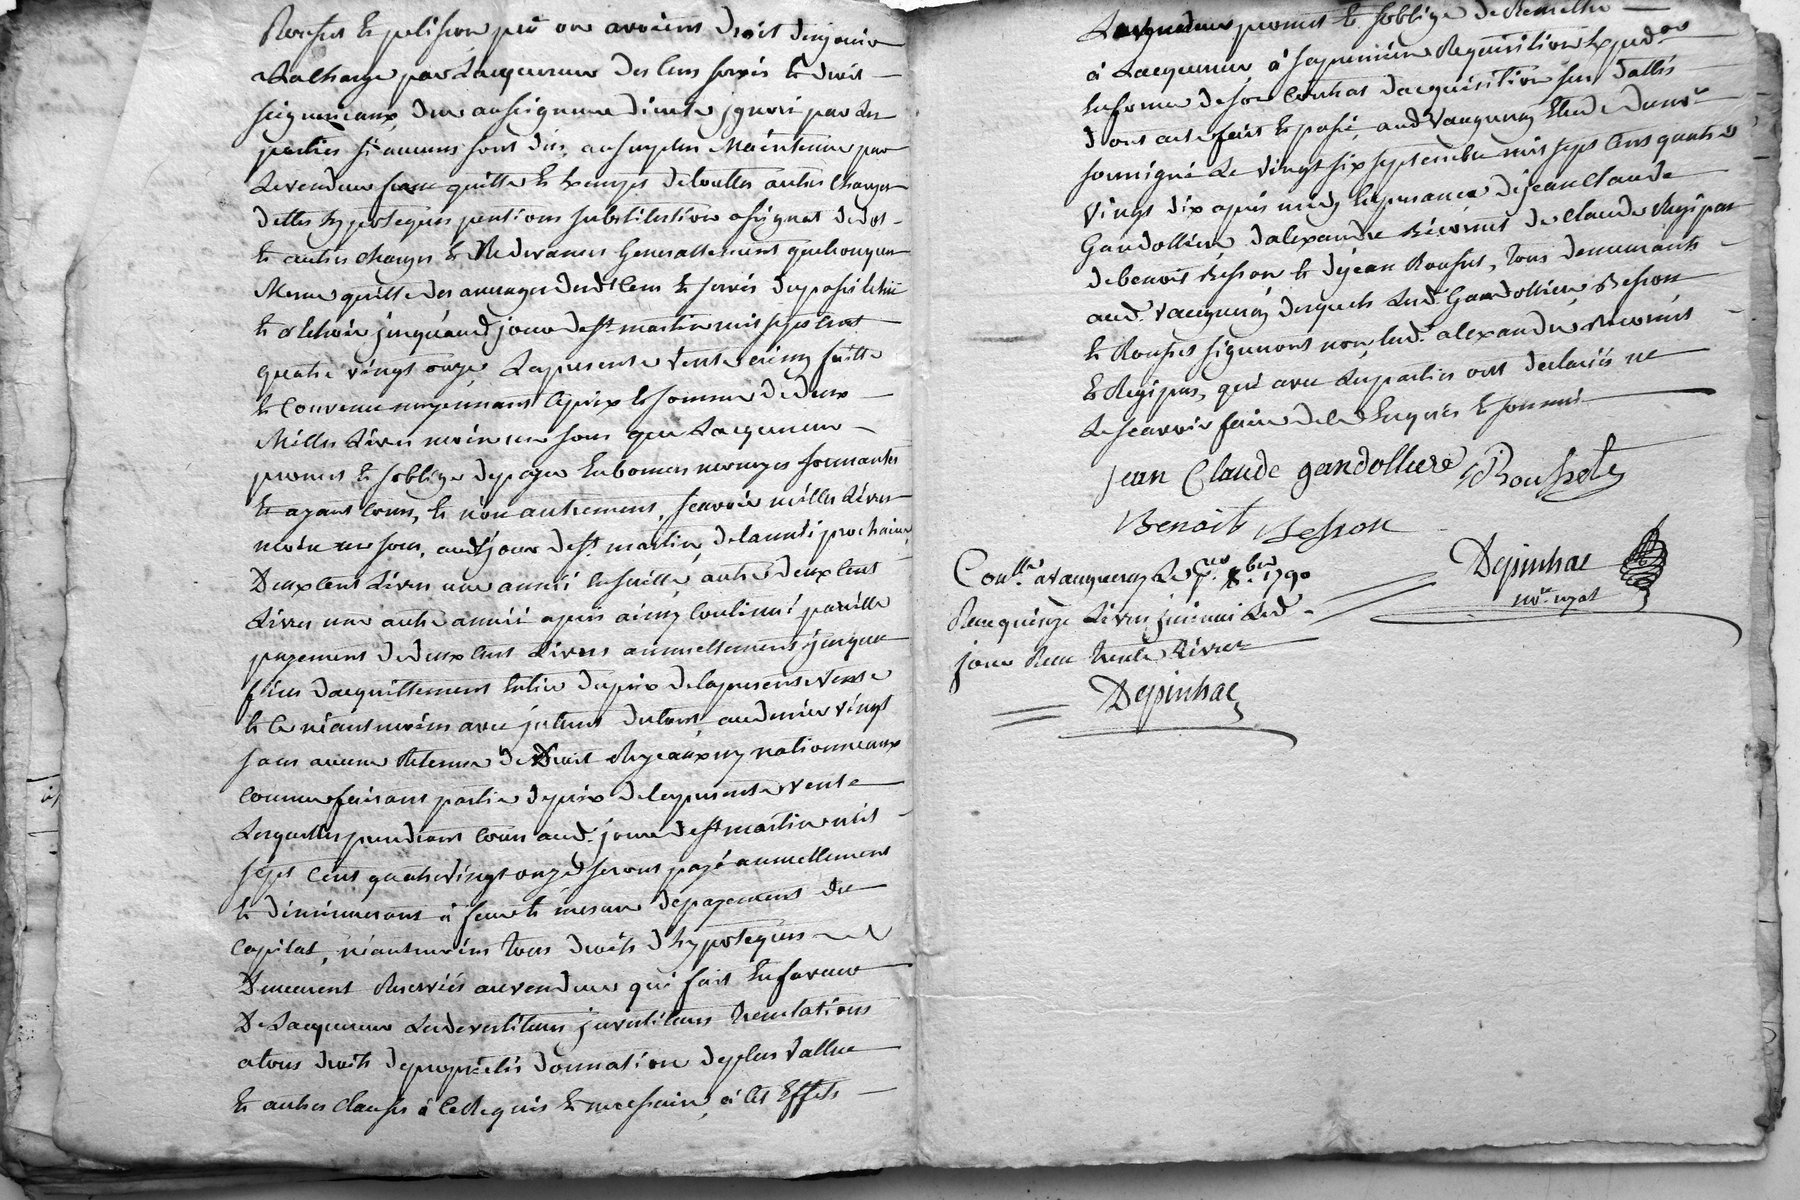 Rousset et pelisson peu ou avoient droit d'en jouir
a la charge par l'acquereur des cens servis et droit
seigneuriaux, deu au seigneur directe ignoré par les
parties si aucuns sont dus, au surplus Maintenue par
Le vendeur franc quitte et exempts de touttes autres charges
dettes hypoteques pentions substitution assignat de dot
et autres charges et Redevances Generallement quelconques
Meme quitte des arrerages desdts Cens et servis du passé
et à échoir jusqu'aud. jour de st martin mil sept cent
quatre vingt onze, La presente vente ainsy faitte
et convenue moyennant le prix et somme de deux
Milles Livres moins un sous que L'acquereur
promet et s'obblige de payer en bonnes monoyes sonnantes
et ayant cours, et non autrement, scavoir milles Livres
moin un sous, aud. jour de st martin, de l'année prochaine,
Deux cent Livres une année ensuitte, autre deux cent
Livres une autre année apres ainsy continué pareille
payement de deux cent Livres annuellement jusques
fins d'acquittement entier du prix de la presente vente
et ce néantmoins avec interets du tout, au denier vingt
sans aucune Retenue de Droit Royeaux ny nationneaux
comme faisant partie du prix de la presente vente
Lesquelles prendront cours aud. jour de st martin mil
sept cent quatre vingt onze et seront payé annuellement
et diminueront à fur et mesure du payement du
capital, néantmoins tous droits d'hypoteques
Demeurent Reservés au vendeur qui fait en faveur
De l'acquereur Les devestitures investitures
a tous droits de propriétés donnation de plus vallue
et autres clauses à ce Requis et necessaire, à cet Effets
L'acquereur promet et s'obblige de Remettre
à L'acquereur à sa premiere Requisition Expedon
en forme de son contrat d'acquisition
dont acte fait et passé aud. vaugneray Etude du nore
soussigné Le vingt six septembre mil sept cent quatre
vingt dix apres midy en presence de jean Claude
Gandolliere d'alexandre de Claude Regipas
de benoit Besson et de jean Rousset, tous demeurants
aud. vaugneray desquels Lesd. Gandolliere Besson
et Rousset signeront non led. alexandre
et Regipas, qui avec Les parties ont declarés ne
Le scavoir faire de ce Enquis et sommé
jean Claude gandolliere Rousset
Benoit Besson
Conllé a vaugneray Le 1790
Recu quinze Livres
jour Recu trente Livres
Depinhac
Depinhac
nore royal